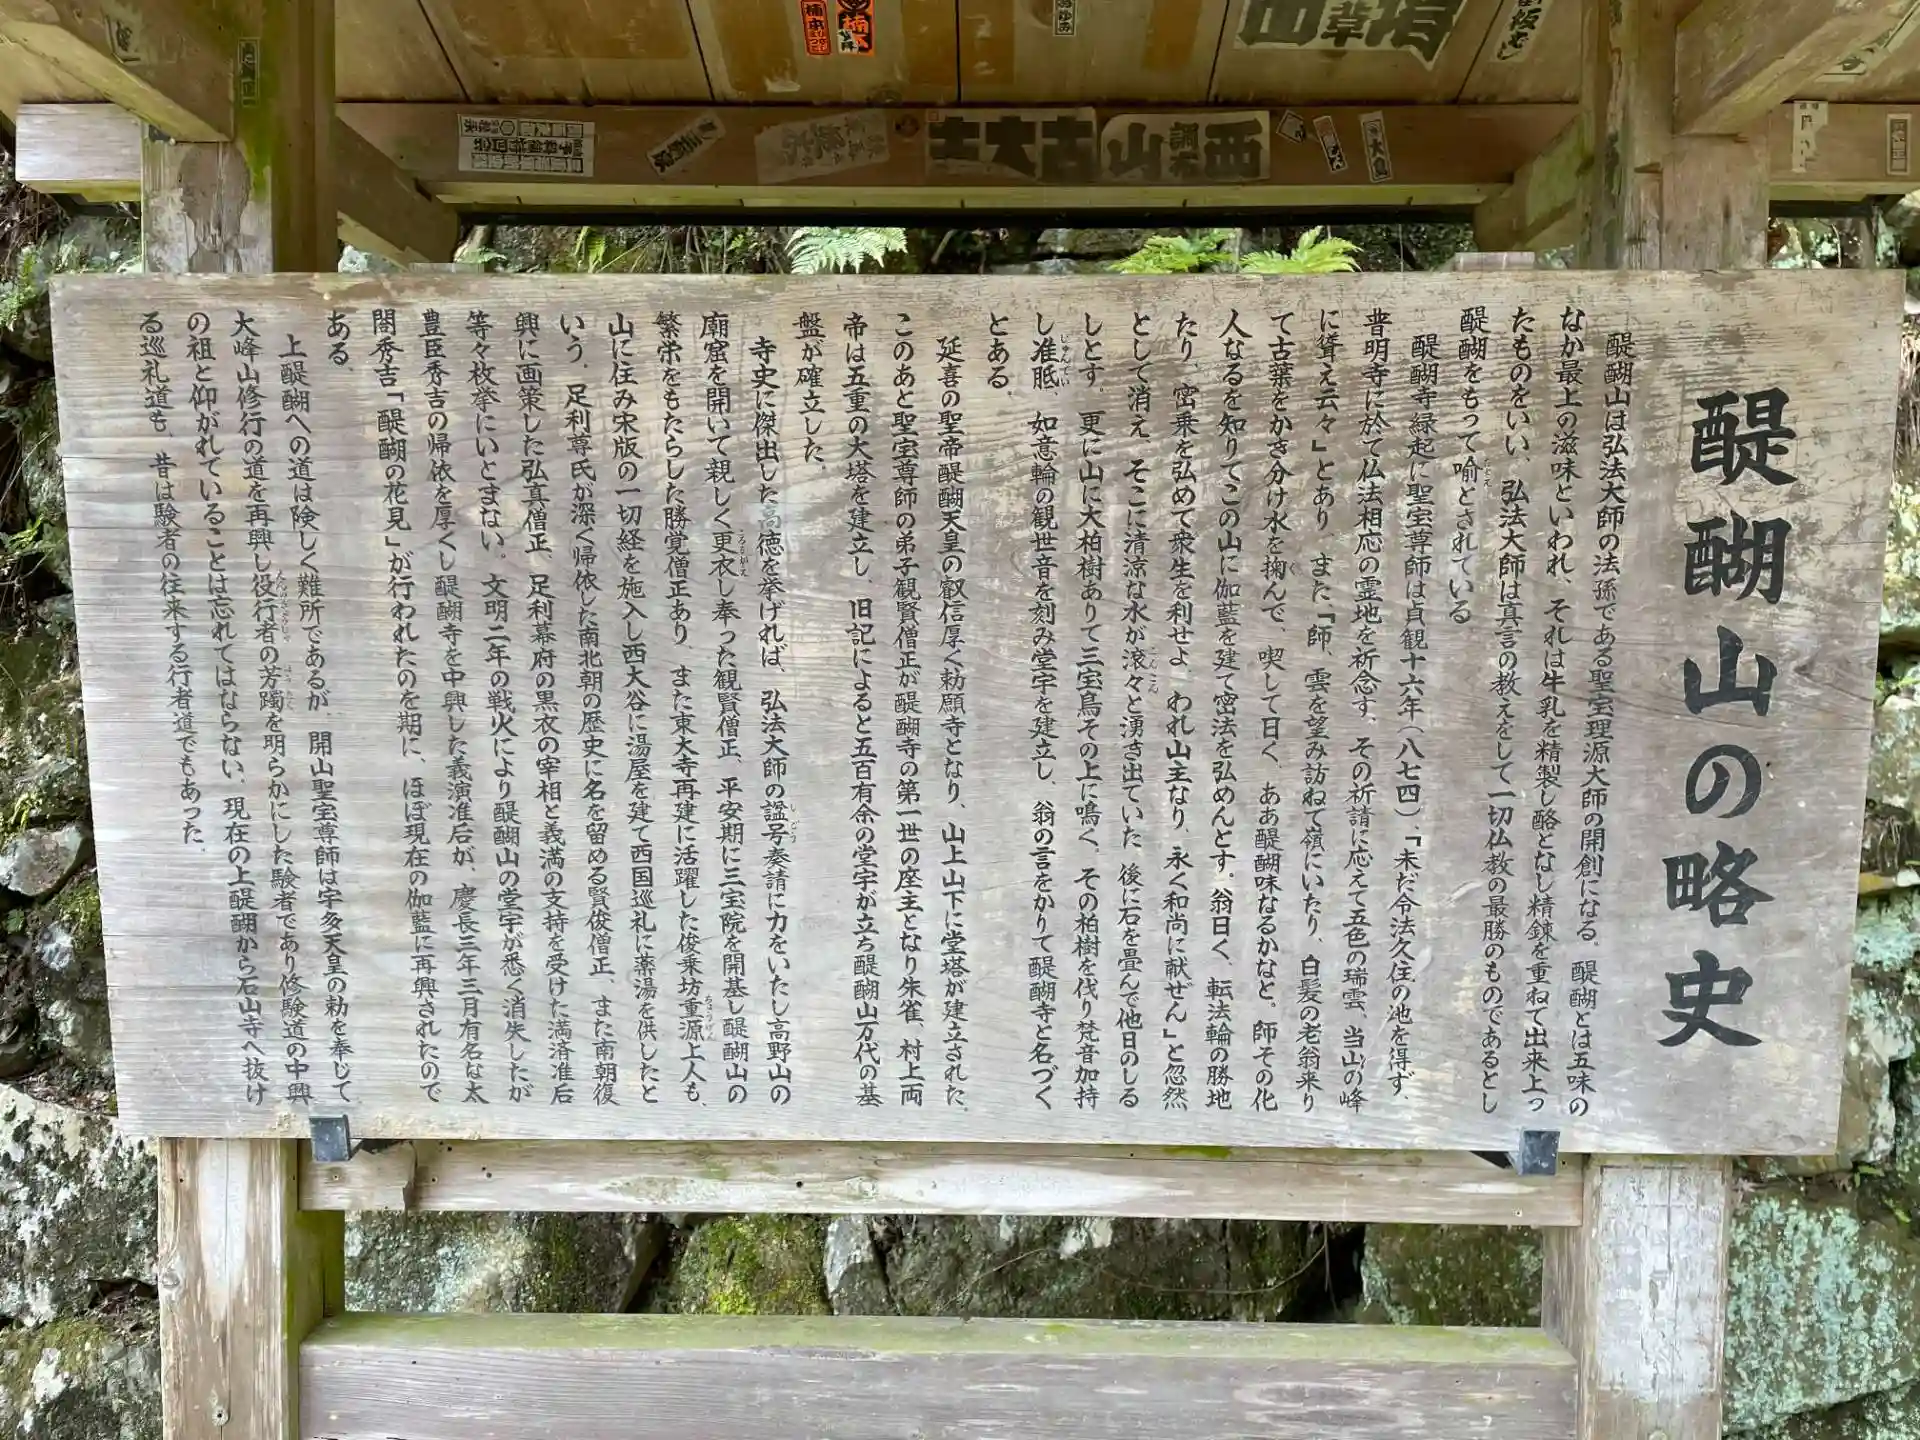 醍醐山の略史
醍醐山は弘法大師の法孫である聖宝理源大師の開創になる。醍醐とは五味の
なか最上の滋味といわれ、それは牛乳を精製し酪となし精錬を重ねて出来上っ
たものをいい、弘法大師は真言の教えをして一切仏教の最勝のものであるとし
醍醐をもって喩とされている
醍醐寺縁起に聖宝尊師は貞観十六年(八七四)、「未だ令法久住の地を得ず、
普明寺に於て仏法相応の霊地を祈念す、その祈請に応えて五色の瑞雲、当山の峰
に聳え云々」とあり、また「師、雲を望み訪ねて嶺にいたり、白髪の老翁来り
て古葉をかき分け水を掬んで、喫して曰く、ああ醍醐味なるかなと。師その化
人なるを知りてこの山に伽藍を建て密法を弘めんとす。翁曰く、転法輪の勝地
たり、密乗を弘めて衆生を利せよ、われ山主なり、永く和尚に献ぜん」と忽然
として消え、そこに清涼な水が滾々と湧き出ていた、後に石を畳んで他日のしる
しとす。更に山に大柏樹ありて三宝鳥その上に鳴く。その柏樹を伐り梵音加持
し准胝、如意輪の観世音を刻み堂宇を建立し、翁の言をかりて醍醐寺と名づく
とある。
延喜の聖帝醍醐天皇の叡信厚く勅願寺となり、山上山下に堂塔が建立された、
このあと聖宝尊師の弟子観賢僧正が醍醐寺の第一世の座主となり朱雀、村上両
帝は五重の大塔を建立し、旧記によると五百有余の堂宇が立ち醍醐山万代の基
盤が確立した、
寺史に傑出した高徳を挙げれば、弘法大師の諡号奏請に力をいたし高野山の
廟窟を開いて親しく更衣し奉った観賢僧正、平安期に三宝院を開基し醍醐山の
繁栄をもたらした勝覚僧正あり、また東大寺再建に活躍した俊乗坊重源上人も、
山に住み宋版の一切経を施入し西大谷に湯屋を建て西国巡礼に薬湯を供したと
いう、足利尊氏が深く帰依した南北朝の歴史に名を留める賢俊僧正、また南朝復
興に画策した弘真僧正、足利幕府の黒衣の宰相と義満の支持を受けた満済准后
等々枚挙にいとまない。文明二年の戦火により醍醐山の堂宇が悉く消失したが
豊臣秀吉の帰依を厚くし醍醐寺を中興した義演准后が、慶長三年三月有名な太
閤秀吉「醍醐の花見」が行われたのを期に、ほぼ現在の伽藍に再興されたので
ある、
上醍醐への道は険しく難所であるが、開山聖宝尊師は宇多天皇の勅を奉じて
大峰山修行の道を再興し役行者の芳躅を明らかにした験者であり修験道の中興
の祖と仰がれていることは忘れてはならない、現在の上醍醐から石山寺へ抜け
る巡礼道も、昔は験者の往来する行者道でもあった。